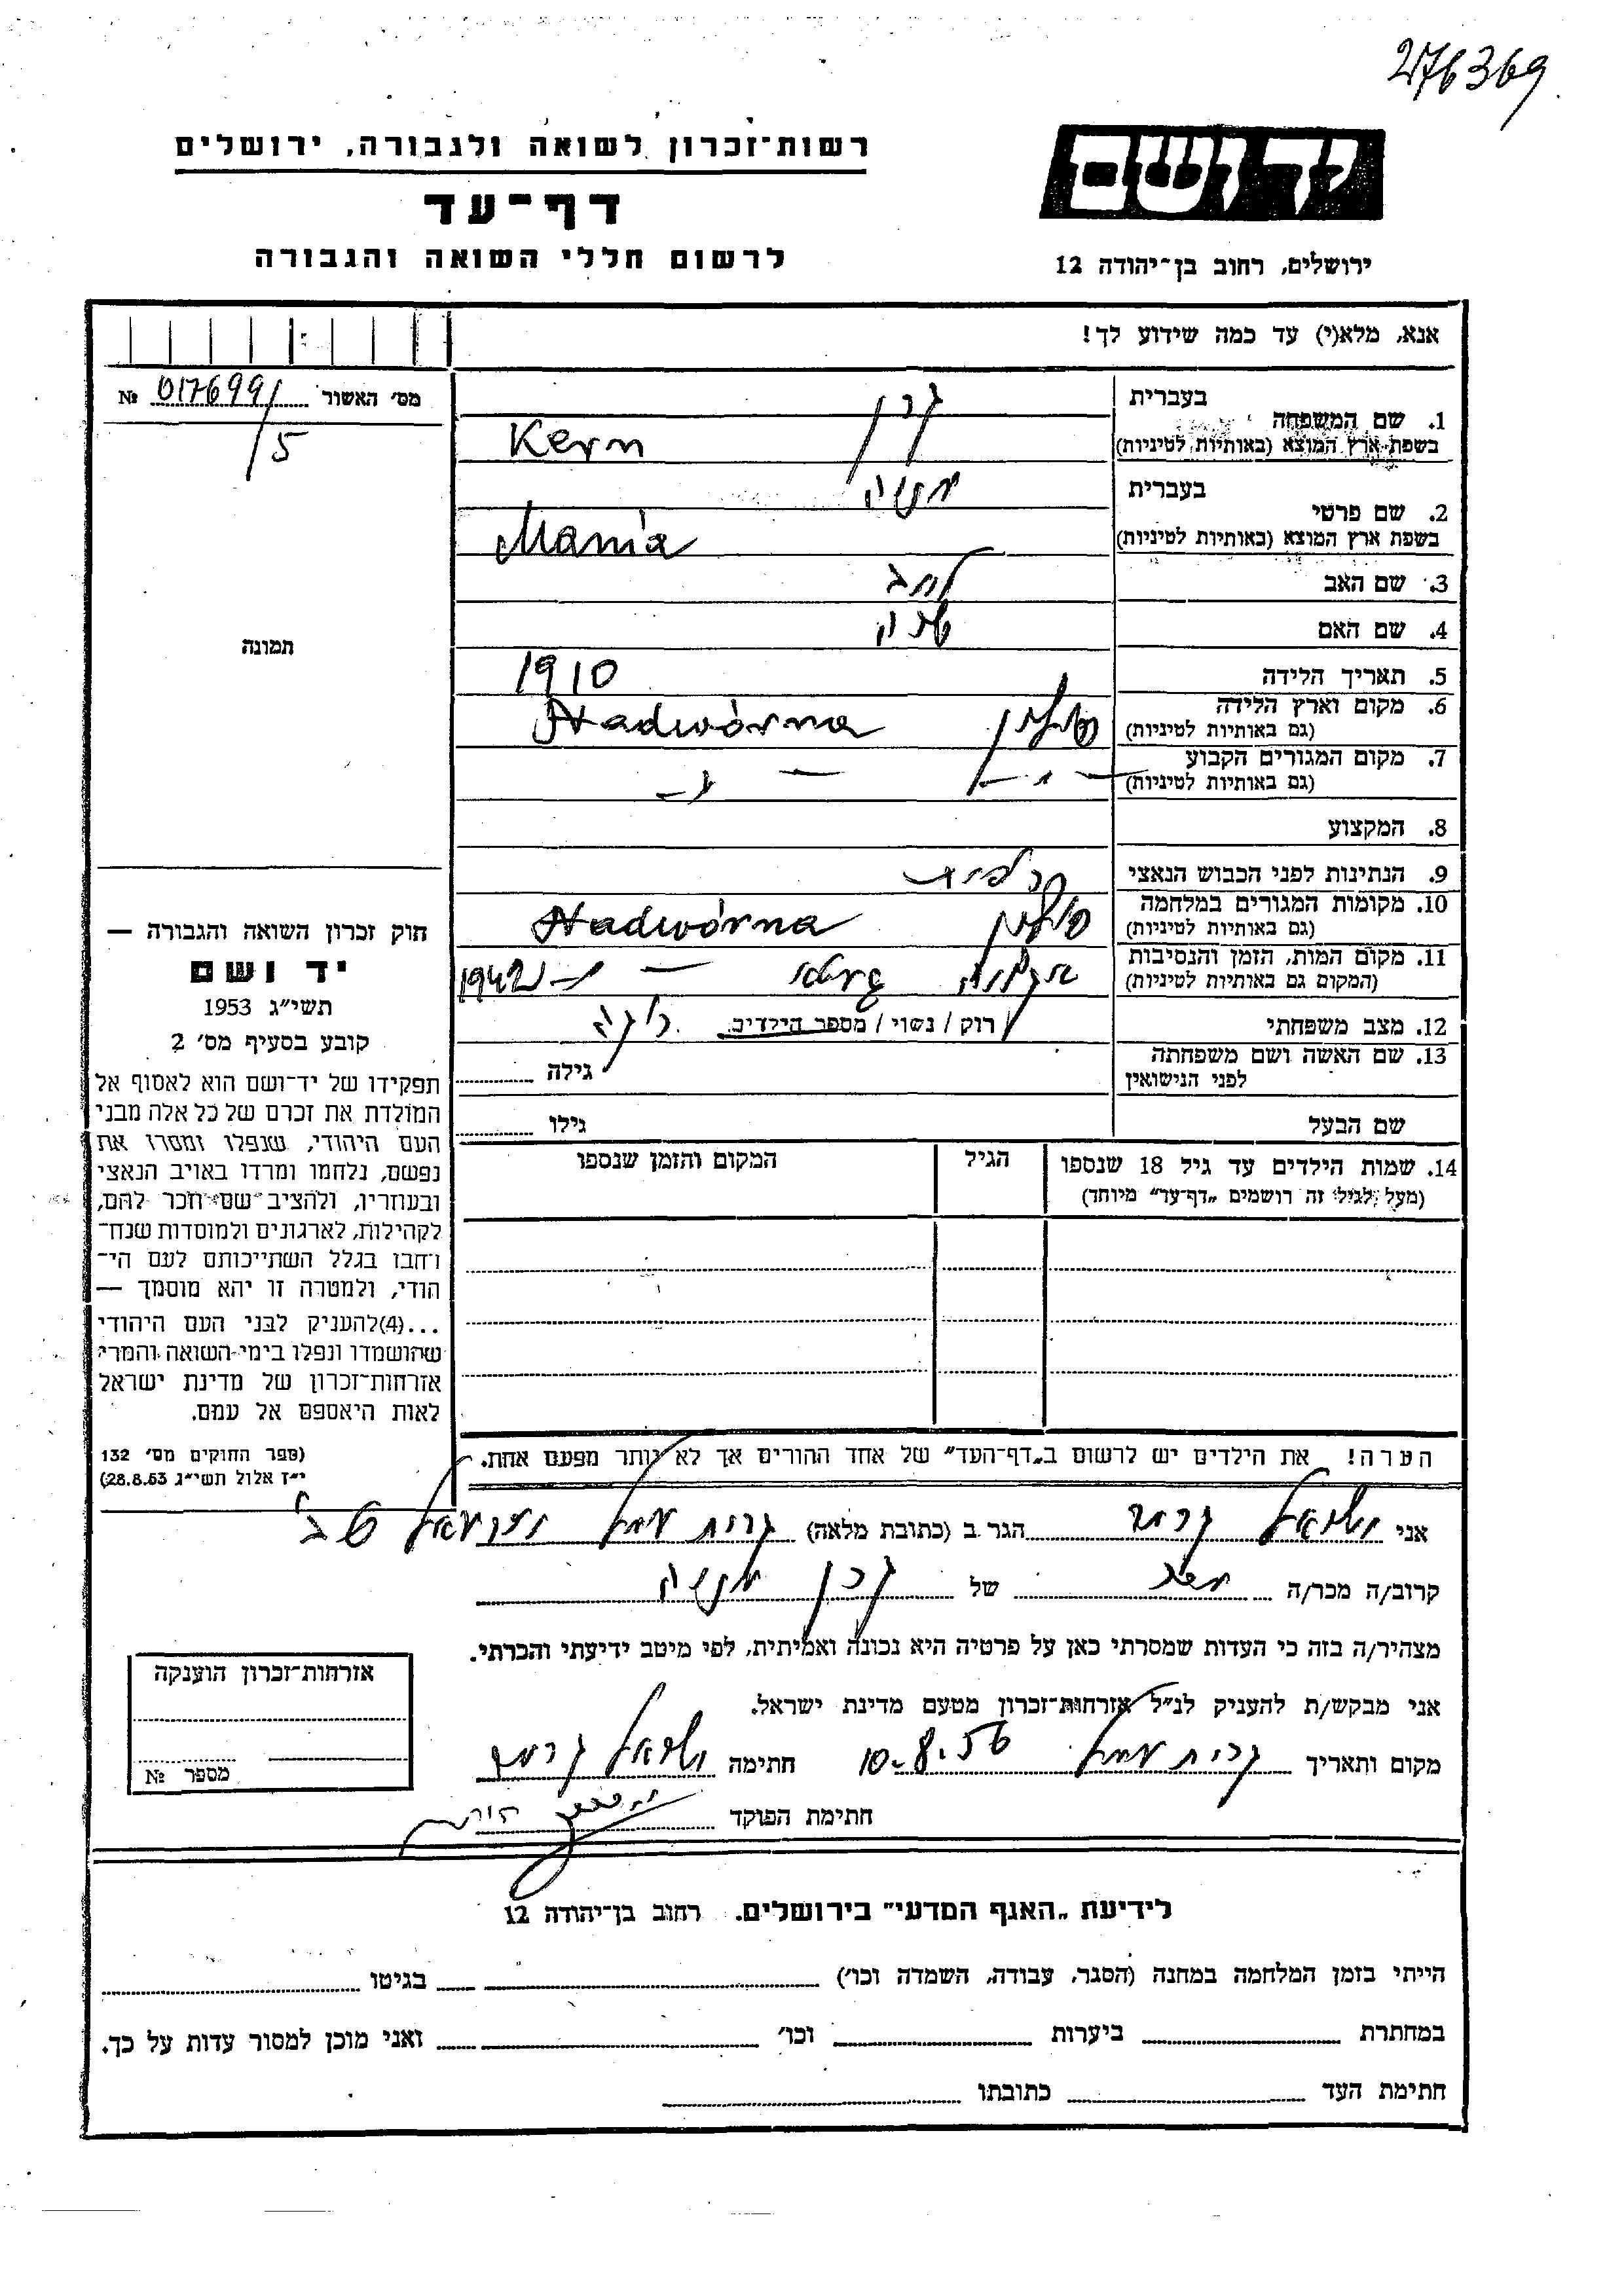 276369
רשות־זכרון לשואה ולגבורה, ירושלים
דף־עד
לרשום חללי השואה והגבורה
יד ושם
ירושלים, רחוב בן־יהודה 12
אנא, מלא(י) עד כמה שידוע לך!
מס׳ האשור 017699/5 №
תמונה
1. שם המשפחה בעברית קרן
בשפת־ארץ המוצא (באותיות לטיניות) Kern
2. שם פרטי בעברית מניה
בשפת ארץ המוצא (באותיות לטיניות) Mania
3. שם האב
4. שם האם
5. תאריך הלידה 1910
6. מקום וארץ הלידה פולין Nadwórna
(גם באותיות לטיניות)
7. מקום המגורים הקבוע
(גם באותיות לטיניות)
8. המקצוע
9. הנתינות לפני הכבוש הנאצי
10. מקומות המגורים במלחמה פולין Nadwórna
(גם באותיות לטיניות)
11. מקום המות, הזמן והנסיבות 1942
(המקום גם באותיות לטיניות)
12. מצב משפחתי רוק / נשוי / מספר הילדים
13. שם האשה ושם משפחתה גילה
לפני הנישואין
שם הבעל גילו
14. שמות הילדים עד גיל 18 שנספו הגיל המקום והזמן שנספו
(מעל לגיל זה רושמים „דף־עד" מיוחד)
חוק זכרון השואה והגבורה —
יד ושם
תשי״ג 1953
קובע בסעיף מס׳ 2
תפקידו של יד־ושם הוא לאסוף אל
המולדת את זכרם של כל אלה מבני
העם היהודי, שנפלו ומסרו את
נפשם, נלחמו ומרדו באויב הנאצי
ובעוזריו, ולהציב שם וזכר להם,
לקהילות, לארגונים ולמוסדות שנח־
רבו בגלל השתייכותם לעם הי־
הודי, ולמטרה זו יהא מוסמך —
...(4)להעניק לבני העם היהודי
שהושמדו ונפלו בימי השואה והמרי
אזרחות־זכרון של מדינת ישראל
לאות היאספם אל עמם.
(ספר החוקים מס׳ 132
י״ז אלול תשי״ג 28.8.53)
הערה! את הילדים יש לרשום ב„דף־העד" של אחד ההורים אך לא יותר מפעם אחת.
אני הגר ב (כתובת מלאה) קרית
קרוב/ה מכר/ה של קרן מניה
מצהיר/ה בזה כי העדות שמסרתי כאן על פרטיה היא נכונה ואמיתית, לפי מיטב ידיעתי והכרתי.
אני מבקש/ת להעניק לנ״ל אזרחות־זכרון מטעם מדינת ישראל.
מקום ותאריך קרית 10.8.56 חתימה
חתימת הפוקד
אזרחות־זכרון הוענקה
מספר №
לידיעת „האגף המדעי" בירושלים. רחוב בן־יהודה 12
הייתי בזמן המלחמה במחנה (הסגר, עבודה, השמדה וכו׳) בגיטו
במחתרת ביערות וכו׳ ואני מוכן למסור עדות על כך.
חתימת העד כתובתו